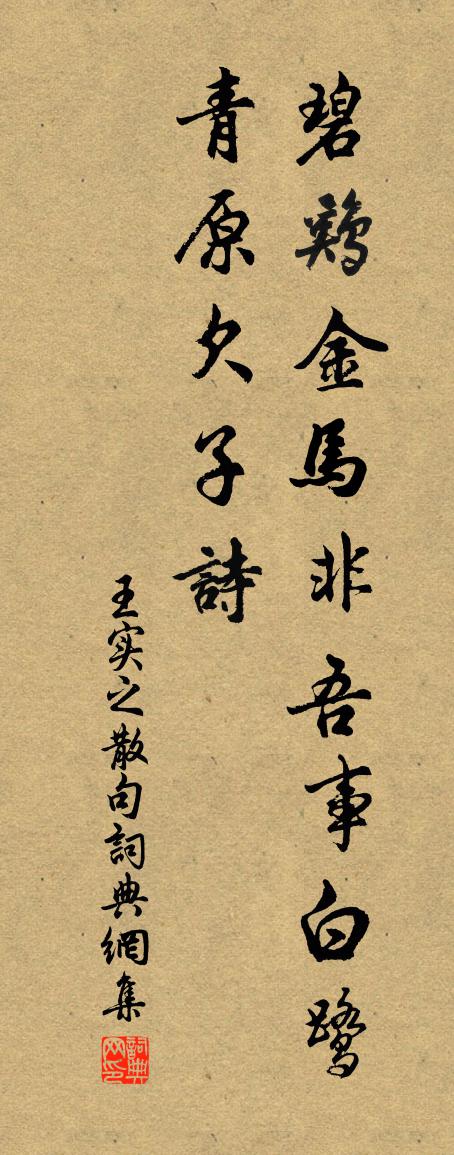 碧鷄金馬非吾事白鷺
青原欠子詩
王实之散句詞典網集
詞典网印